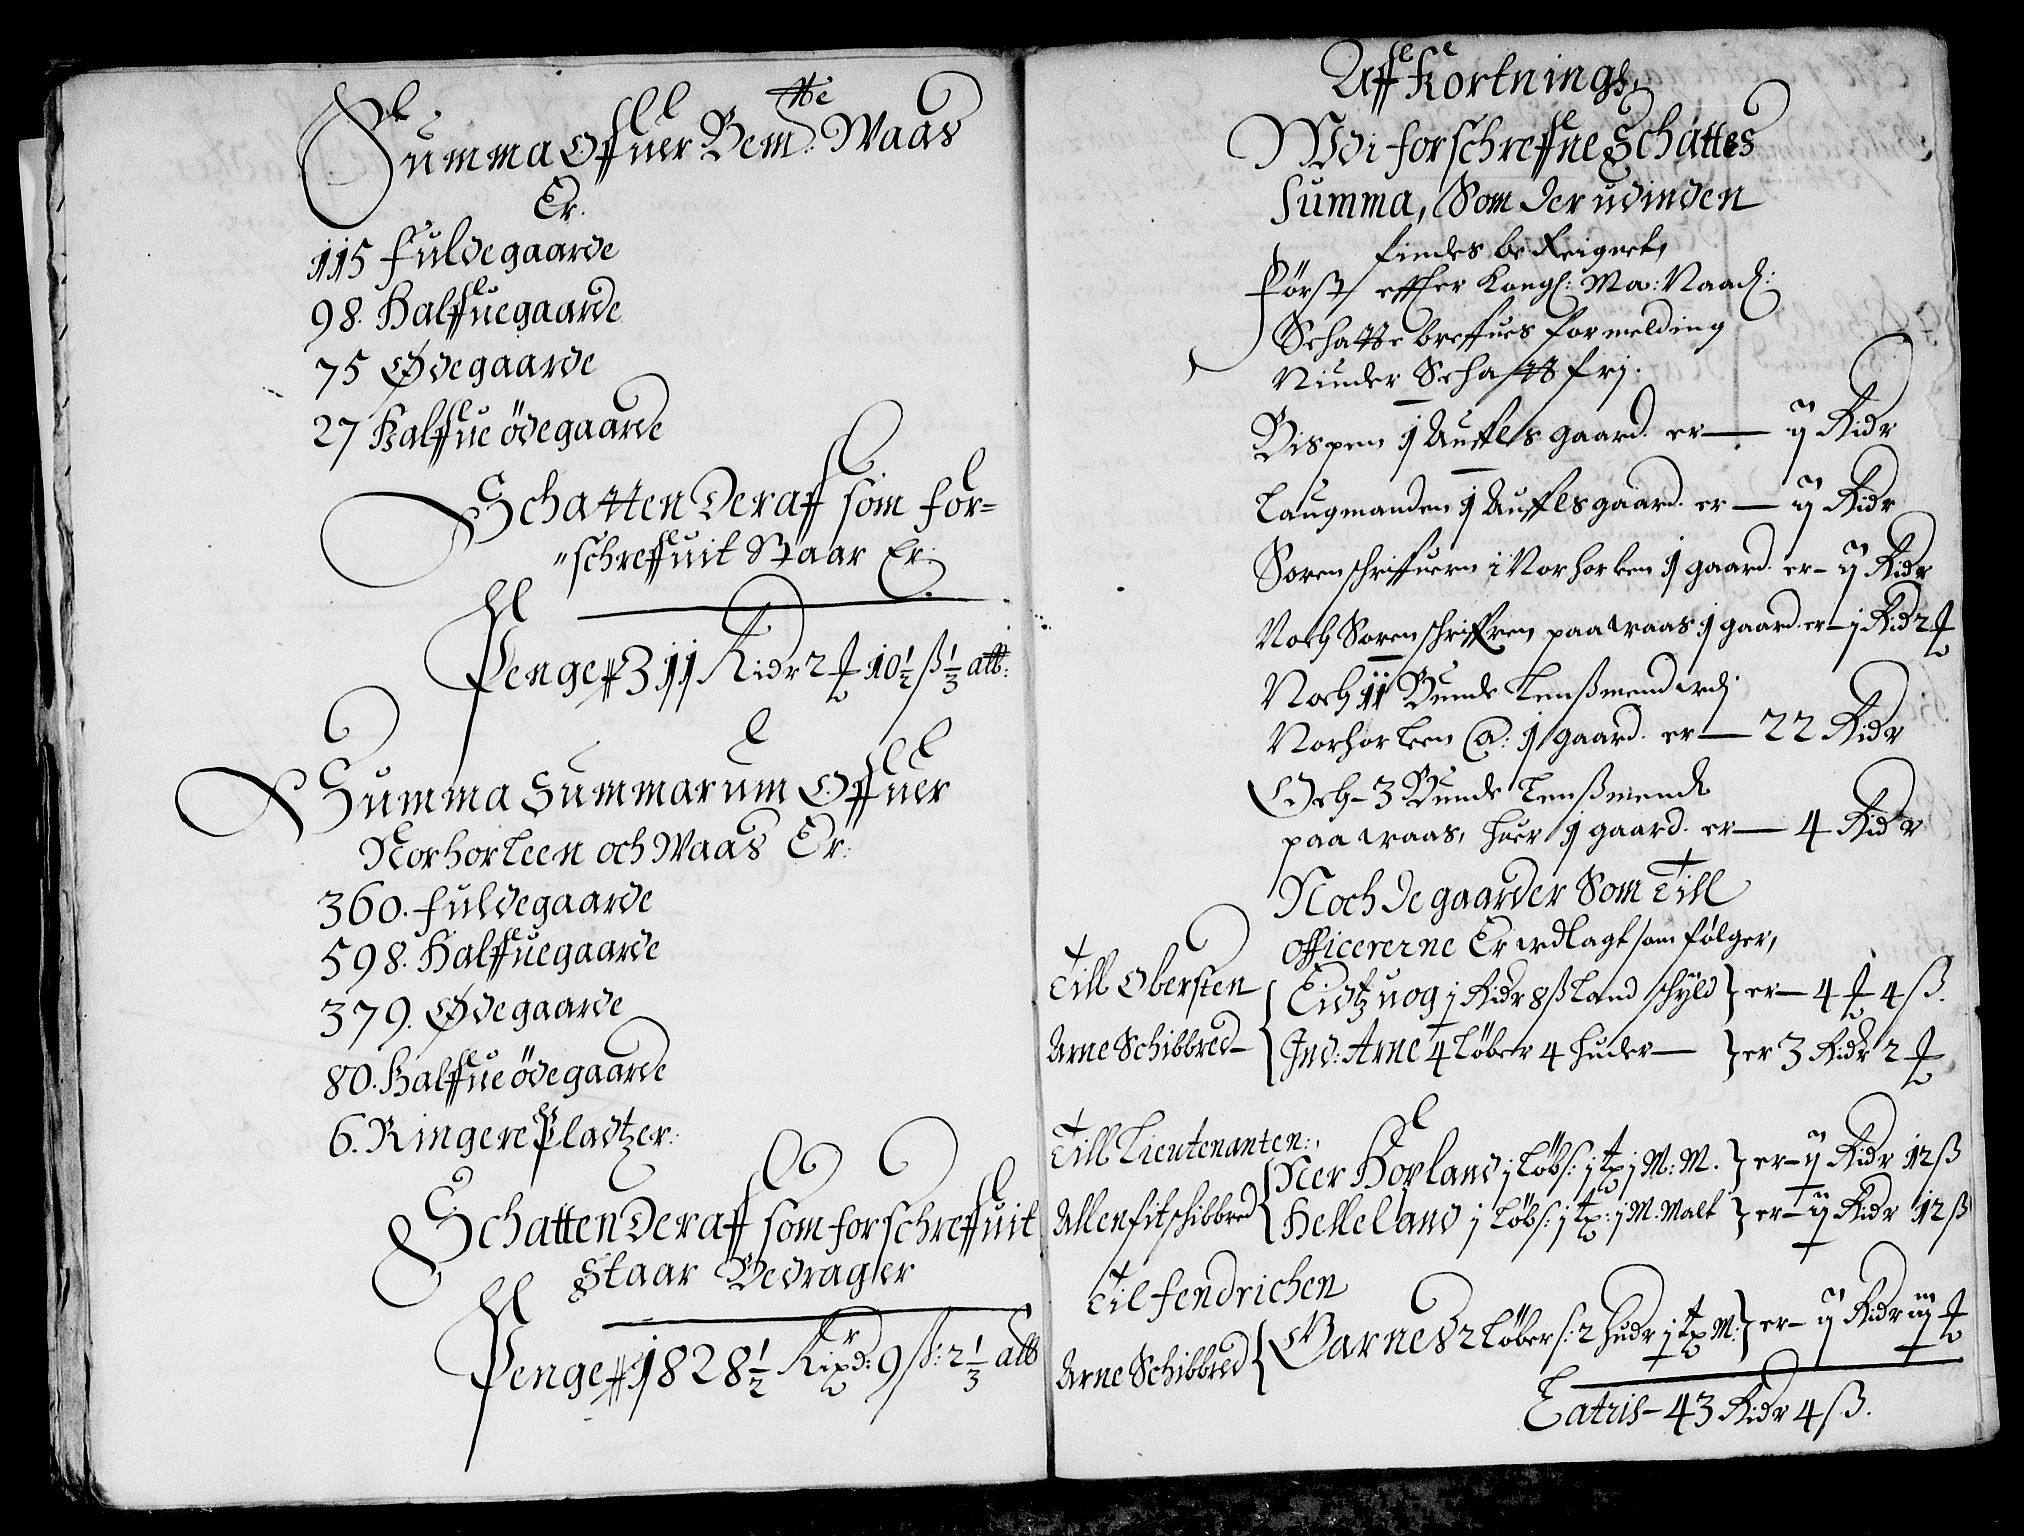 Summa Offuer Bem:tte Waas
Er.
115 fuldegaarde
98. Halffuegaarde
75 Ødegaarde
27 Halffue ödegaarde
Schatten Deraff som for=
"schreffuit Staar Er:
Penge 311 Ridr 2 10½ ß ⅓ alb:
Summa Summarum Offuer
Norhorleen och Waas Er:
360. fuldegaarde
598. Halffuegaarde
379. Ødegaarde
80. Halffue ödegaarde
6. Ringere Pladtzer.
Schatten Deraff som forschreffuit
Staar Bedrager
Penge 1828½ Rixdr: 9 ß: 2⅓ alb
Aff Kortning,
Wdi forschreffne Schattes
Summa, Som Der udinden
findes be Reignet,
Först effter Kongl: Ma: Naad:
Schatte breffues formelding
Niuder Schatt frj.
Bispen j Auffls gaard. er — ij Ridr
Laugmanden j Auffls gaard. er — ij Ridr
Sorenschriffuern i Norhorleen j gaard. er — ij Ridr
Noch Sorenschriffren paa waas j gaard. er — j Rid 2
Noch 11 Bunde Lenßmend wdj
Norhorleen @: j gaard. er — 22 Ridr
Och — 3 Bunde Lenßmend
paa waas, huer j gaard. er — 4 Ridr
Noch De gaarder Som Till
officererne Er wdlagt som følger,
Till Obersten
Arne Schibbred —
Eidtzuog j Ridr 8 ß Land schyld } er — 4 4 ß.
Ind: Arne 4 Löber 4 huder — } er 3 Ridr 2
Till Lieutenanten:,
Ullenfitschibbred
Ner Horland j Löbs: j M: M. } er — ij Ridr 12 ß
Helleland j Löbs: j M. Malt } er — ij Ridr 12 ß
Til fendrichen
Arne Schibbred
Garnes 2 Löbers: 2 hudr j M: } er — ij Ridr iiij
Latris — 43 Ridr 4 ß.